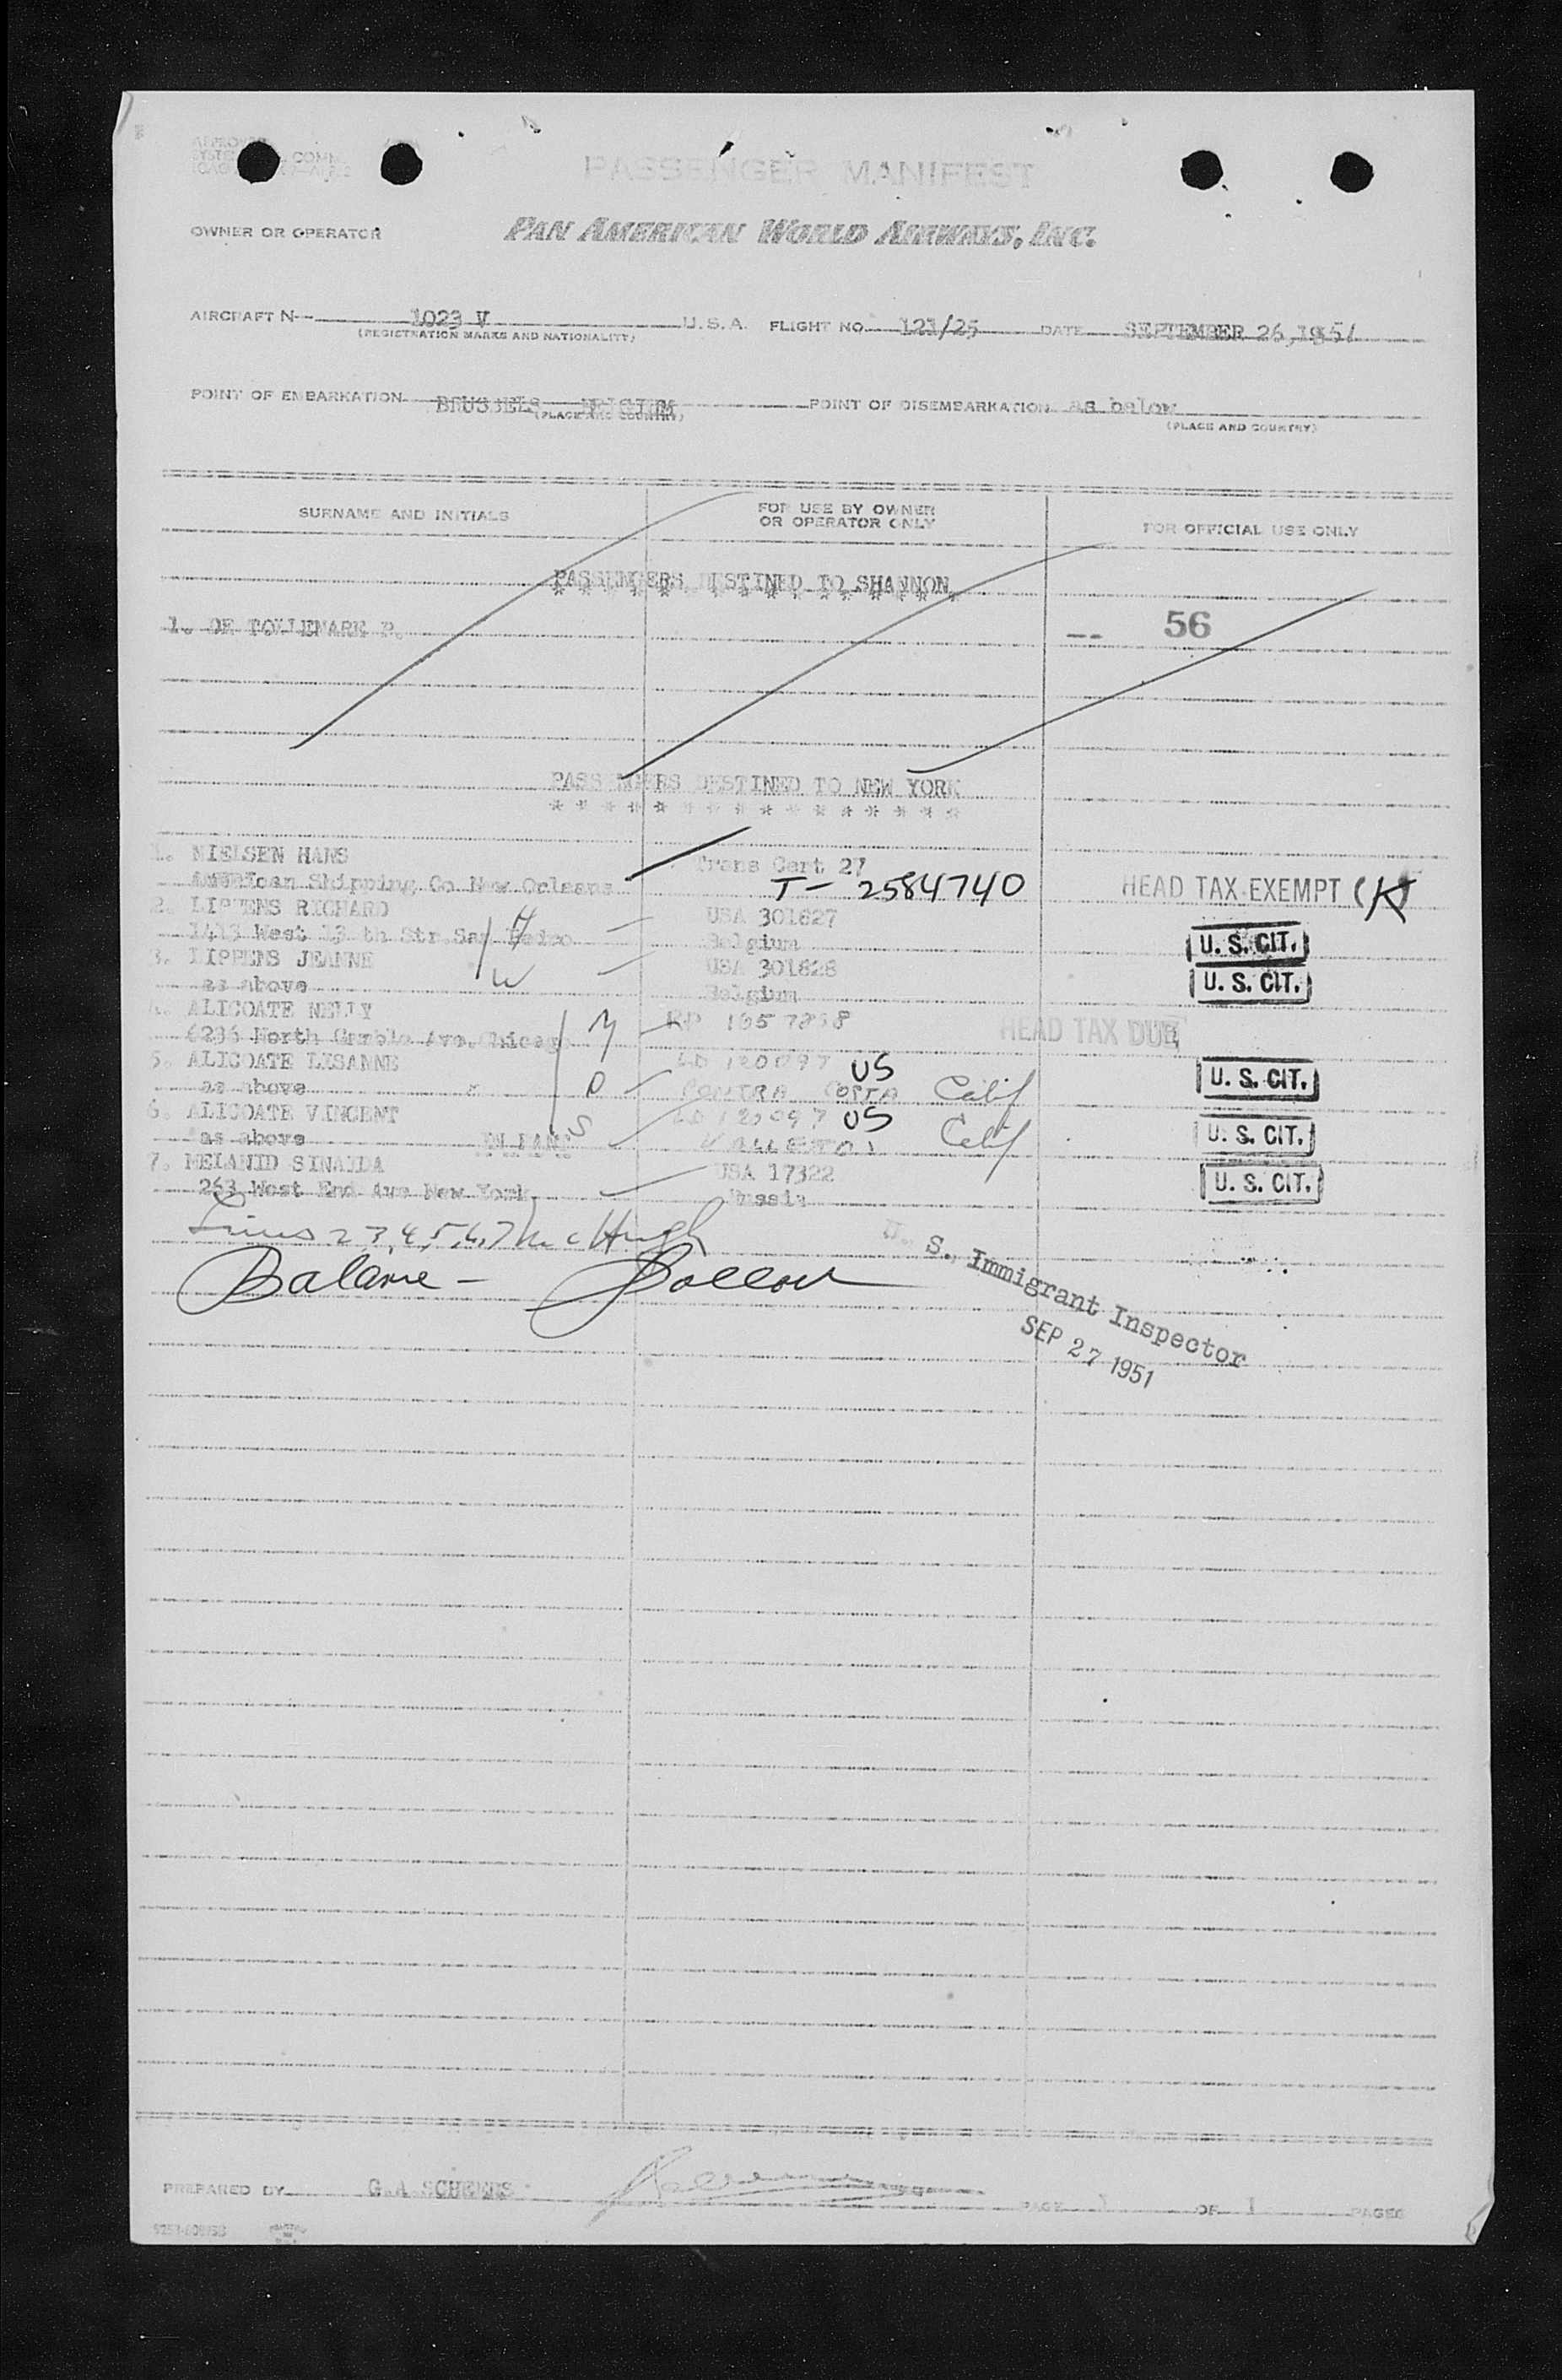 PASSENGER MANIFEST
OWNER OR OPERATOR PAN AMERICAN WORLD AIRWAYS, INC.
AIRCRAFT N 1023 V U.S.A. FLIGHT NO. 121/25 DATE SEPTEMBER 26,1951
(REGISTRATION MARKS AND NATIONALITY)
POINT OF EMBARKATION BRUSSELS BELGIUM POINT OF DISEMBARKATION as below
(PLACE AND COUNTRY) (PLACE AND COUNTRY)
SURNAME AND INITIALS FOR USE BY OWNER OR OPERATOR ONLY FOR OFFICIAL USE ONLY
PASSENGERS DESTINED TO SHANNON
* * * * * * * * * * * * * * * *
1. DE P. -- 56
PASSENGERS DESTINED TO NEW YORK
* * * * * * * * * * * * * * * *
1. NIELSEN HANS Trans Cert 27
American Shipping Co New Orleans T- 2584740 HEAD TAX EXEMPT (K)
2. LIPPENS RICHARD H USA 301827
1413 West 13 th Str San Pedro Belgium U. S. CIT.
3. LIPPENS JEANNE W USA 301828
as above Belgium U. S. CIT.
4. ALICOATE NELLY M RP
6236 North Ave. Chicago HEAD TAX DUE
5. ALICOATE LISANNE 120097 US
as above D CONTRA COSTA Calif U. S. CIT.
6. ALICOATE VINCENT 120097 US
as above INFANT S Calif U. S. CIT.
7. MELANID SINAIDA USA 17322
263 West End Ave New York Russia U. S. CIT.
Lines 2 3, 4, 5, 6, 7 McHugh
Balance -
U. S. Immigrant Inspector
SEP 27 1951
PREPARED BY G.A SCHEERS PAGE 1 OF 1 PAGES